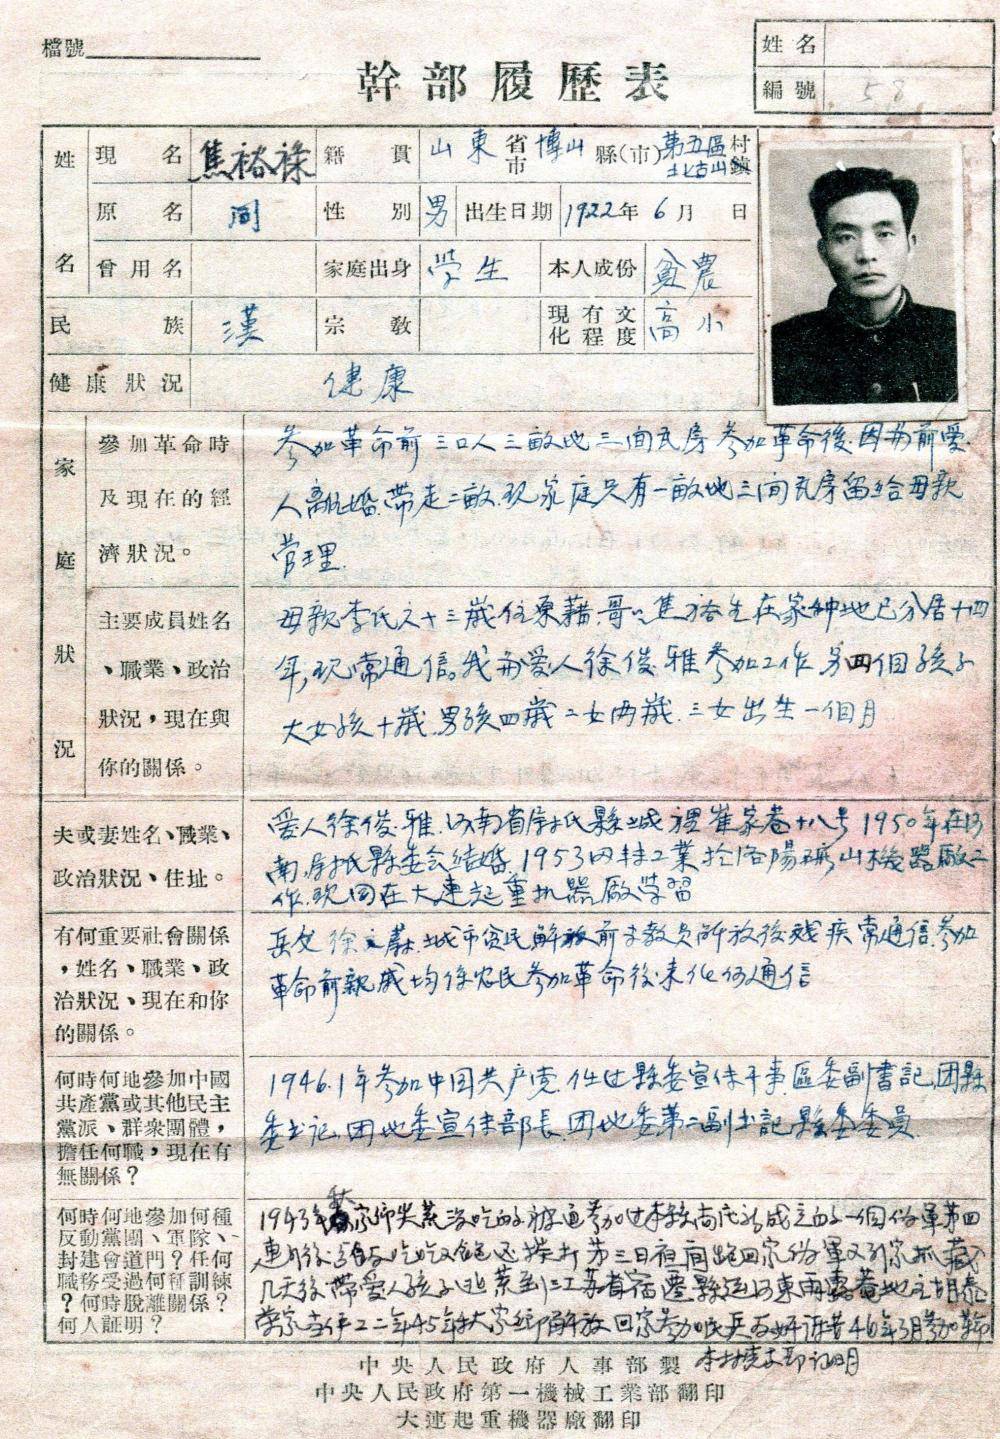 檔號
姓名
編號 58
幹部履歷表
姓名 現名 焦裕祿 籍貫 山東省市 博山縣(市) 第五區北崮山村鎮
原名 同 性別 男 出生日期 1922年6月 日
曾用名 家庭出身 學生 本人成份 貧農
民族 漢 宗教 現有文化程度 高小
健康狀況 健康
家庭狀況
參加革命時及現在的經濟狀況。
參加革命前三口人三畝地三间瓦房參加革命後因為前愛
人離婚帶走二畝.现家庭只有一畝地三间瓦房留给母親
管理.
主要成員姓名、職業、政治狀況,現在與你的關係。
母親李氏六十三歲住原藉.哥〻焦裕生在家种地已分居十四
年,现常通信。我的爱人徐俊雅參加工作 另四個孩子
大女孩十歲.男孩四歲二女两歲.三女出生一個月
夫或妻姓名、職業、政治狀況、住址。
愛人徐俊雅.河南省尉氏縣城裡崔家巷十八号1950年在河
南尉氏縣委会结婚.1953 工業於洛陽矿山機器廠工
作.现同在大連起重机器廠学習
有何重要社會關係,姓名、職業、政治狀況、現在和你的關係。
岳父徐 蔚.城市贫民解放前 教員解放後残疾常通信.參加
革命前親戚均係农民參加革命後未 何通信
何時何地參加中國共產黨或其他民主黨派、群衆團體,擔任何職,現在有無關係?
1946.1年參加中国共产党.任过縣委宣传干事.區委副書記.团縣
委书记.团地委宣传部長.团地委第二副书記.縣委委員.
何時何地參加何種反動黨團、軍隊、封建會道門?任何職務受過何種訓練?何時脫離關係?何人証明?
1943年秋家 荒没吃的 被 參加过本縣 成立的一個伪軍第四
連 吃 飽还挨打第三日夜间跑回家伪軍又到家抓藏
几天後帶爱人孩子逃荒到江苏省宿遷縣 東 地主胡
家 二年45年 家 解放回家參加民兵 46年3月參加革命
本村 支部证明
中央人民政府人事部製
中央人民政府第一機械工業部翻印
大連起重機器廠翻印